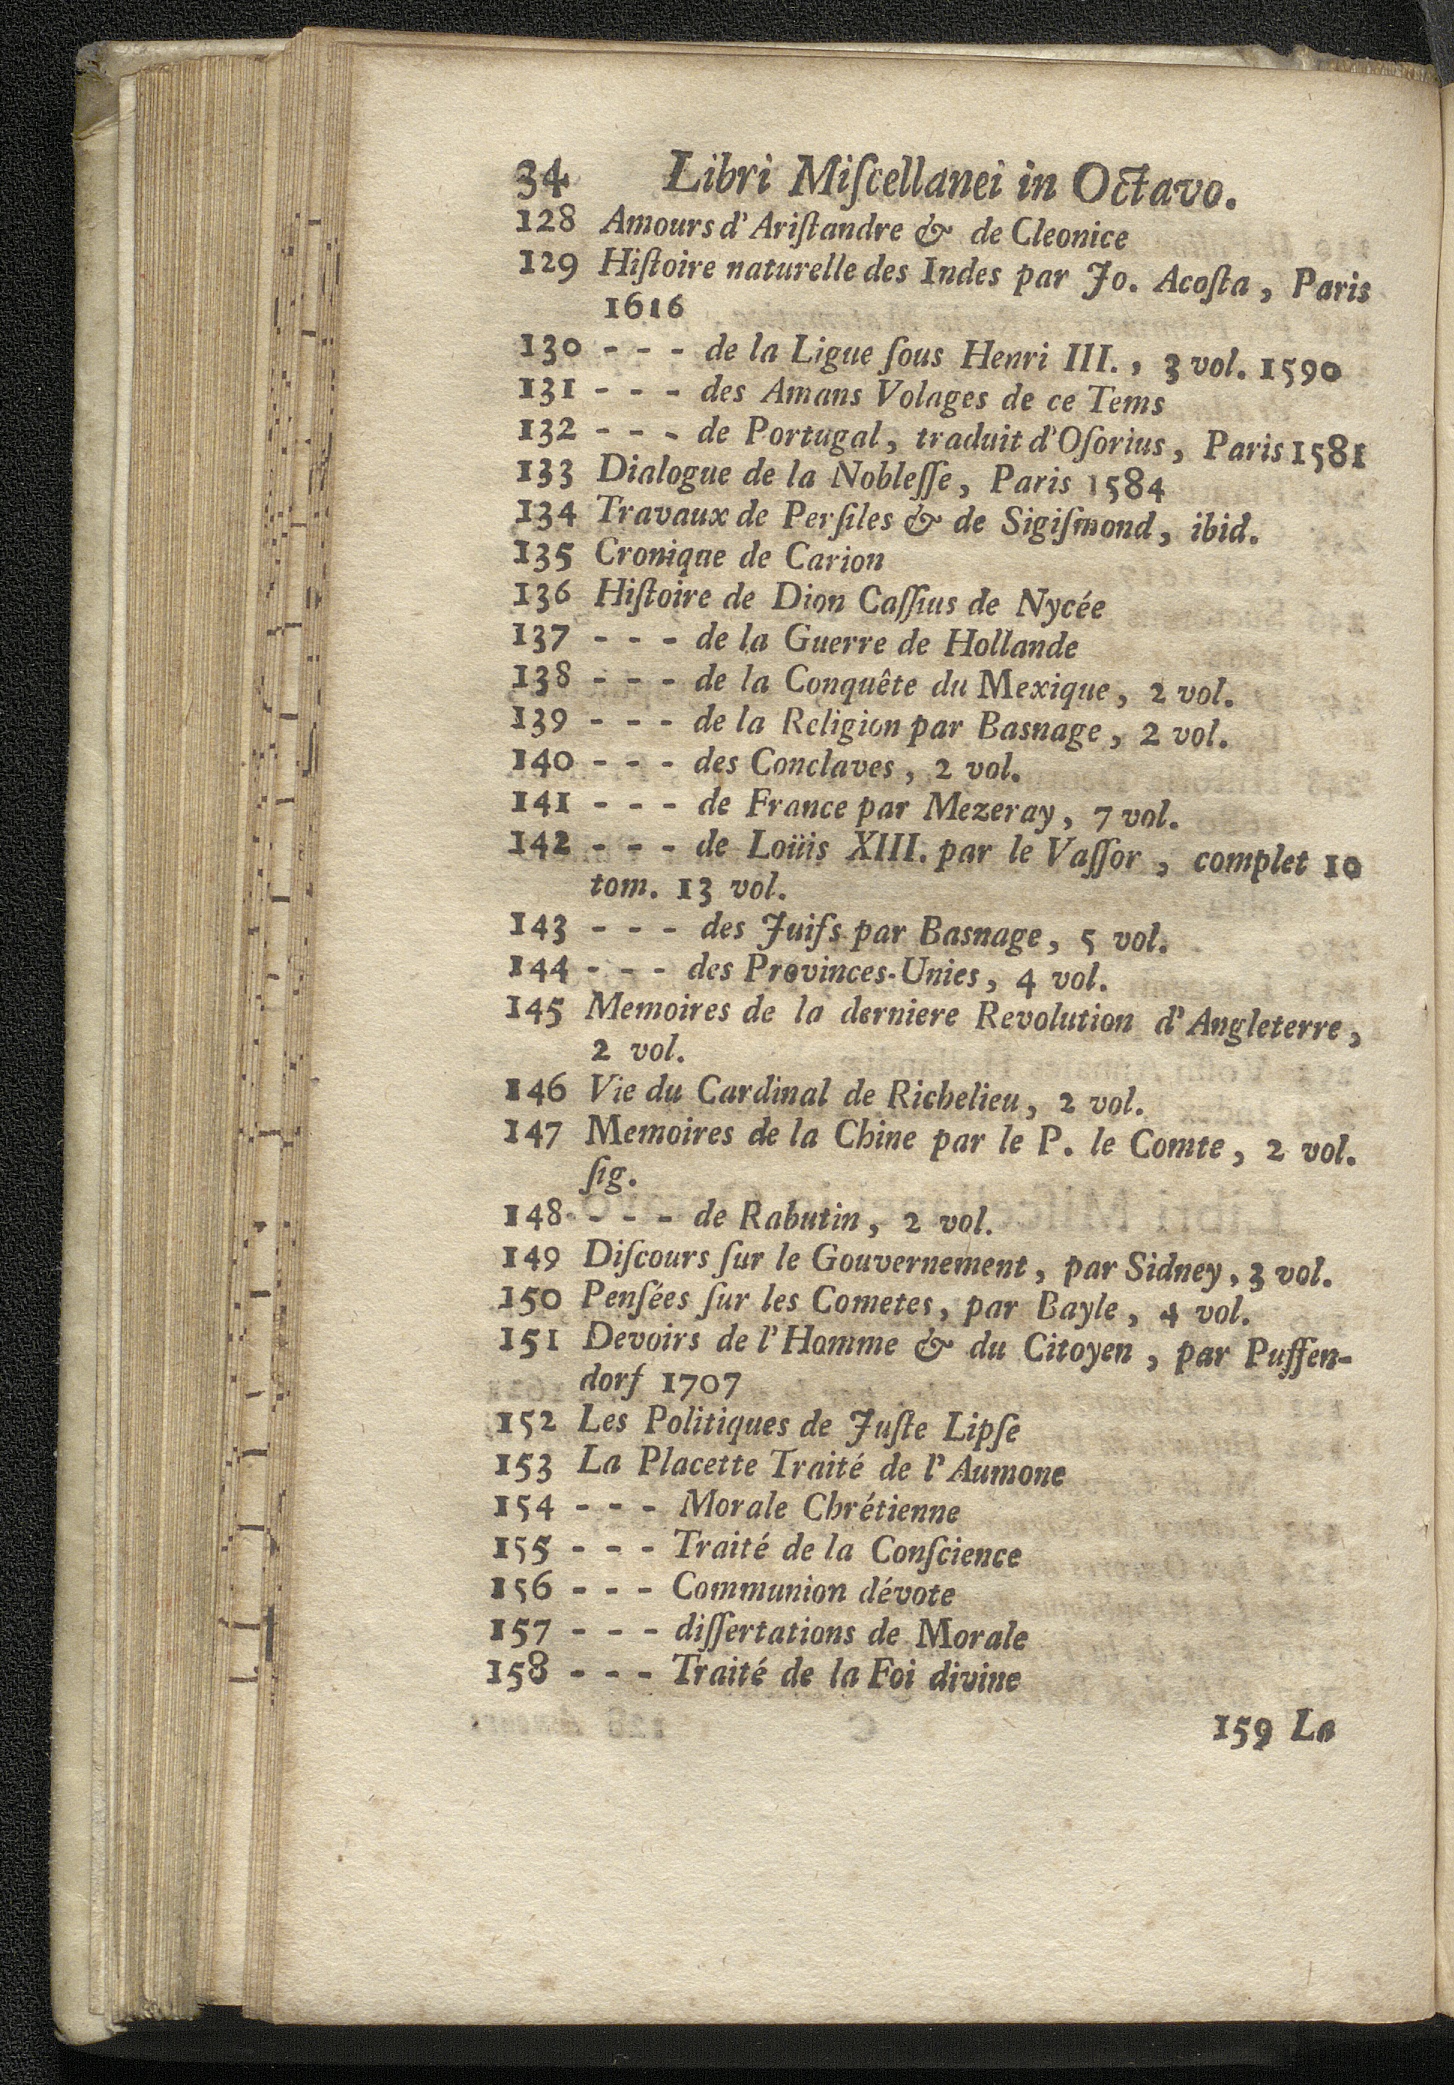 34 Libri Miſcellanei in Octavo.
128 Amours d'Ariſtandre & de Cleonice
129 Hiſtoire naturelle des Indes par Jo. Acoſta, Paris
1616
130 - - - de la Ligue ſous Henri III., 3 vol. 1590
131 - - - des Amans Volages de ce Tems
132 - - - de Portugal, traduit d'Oſorius, Paris 1581
133 Dialogue de la Nobleſſe, Paris 1584
134 Travaux de Perſiles & de Sigiſmond, ibid.
135 Cronique de Carion
136 Hiſtoire de Dion Caſſius de Nycée
137 - - - de la Guerre de Hollande
138 - - - de la Conquête du Mexique, 2 vol.
139 - - - de la Religion par Basnage, 2 vol.
140 - - - des Conclaves, 2 vol.
141 - - - de France par Mezeray, 7 vol.
142 - - - de Loüis XIII. par le Vaſſor, complet 10
tom. 13 vol.
143 - - - des Juifs par Basnage, 5 vol.
144 - - - des Provinces-Unies, 4 vol.
145 Memoires de la derniere Revolution d'Angleterre,
2 vol.
146 Vie du Cardinal de Richelieu, 2 vol.
147 Memoires de la Chine par le P. le Comte, 2 vol.
fig.
148 - - - de Rabutin, 2 vol.
149 Diſcours ſur le Gouvernement, par Sidney, 3 vol.
150 Penſées ſur les Cometes, par Bayle, 4 vol.
151 Devoirs de l'Homme & du Citoyen, par Puffen-
dorf 1707
152 Les Politiques de Juſte Lipſe
153 La Placette Traité de l'Aumone
154 - - - Morale Chrétienne
155 - - - Traité de la Conſcience
156 - - - Communion dévote
157 - - - diſſertations de Morale
158 - - - Traité de la Foi divine
159 La